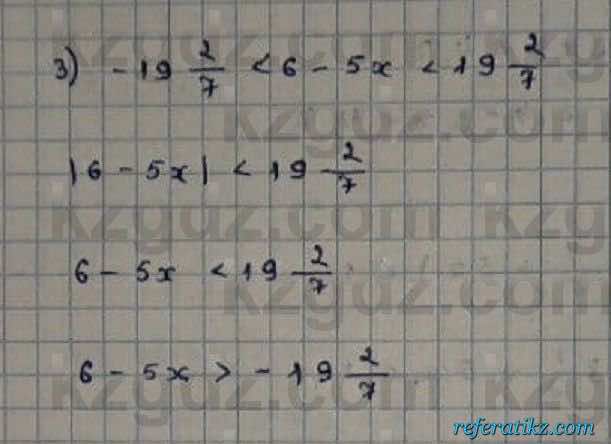 3) -19 2/7 < 6 - 5x < 19 2/7
|6 - 5x| < 19 2/7
6 - 5x < 19 2/7
6 - 5x > -19 2/7
kzguz.com
referatikz.com